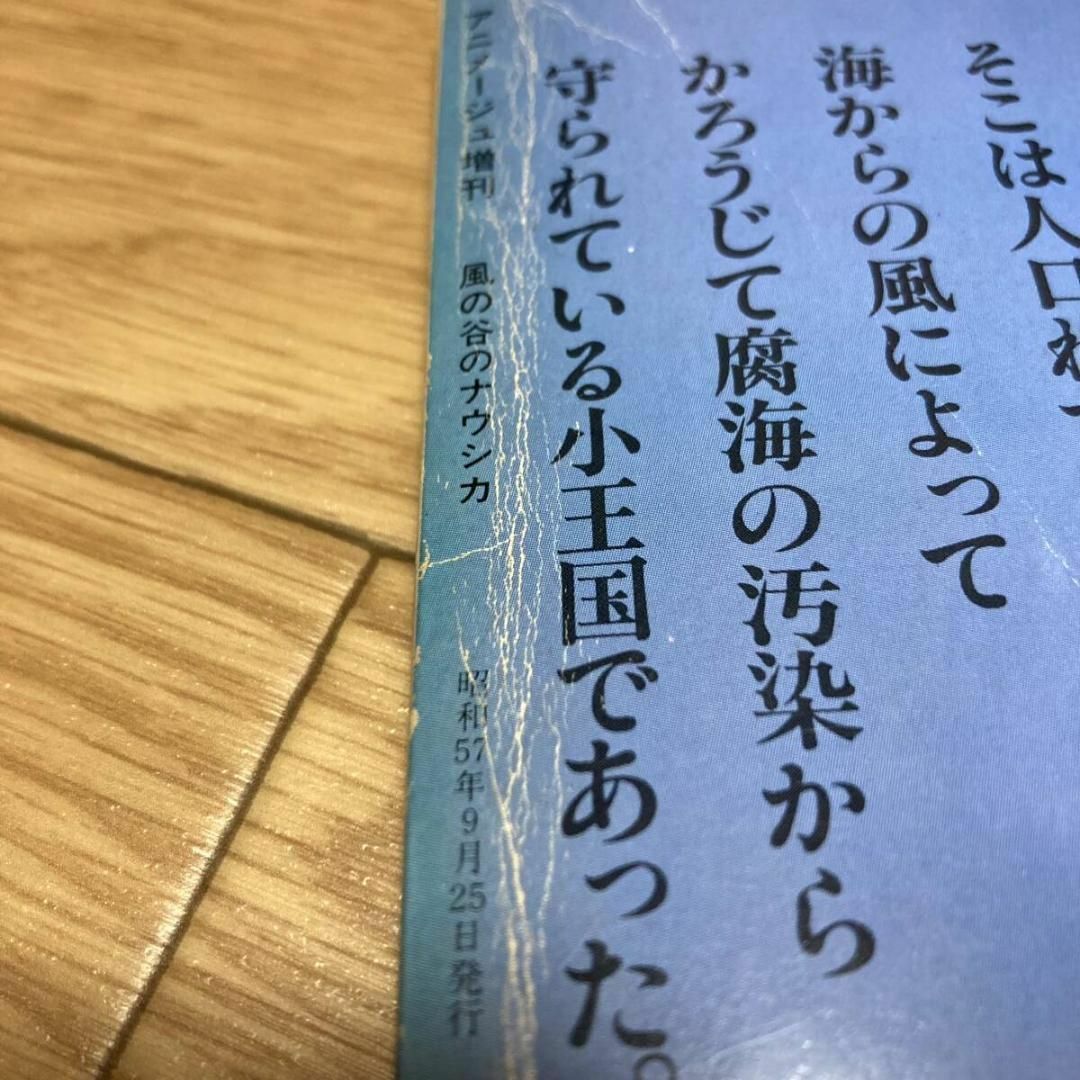 そこは人口わ
海からの風によって
かろうじて腐海の汚染から
守られている小王国であった。
アニメージュ増刊 風の谷のナウシカ
昭和57年9月25日発行